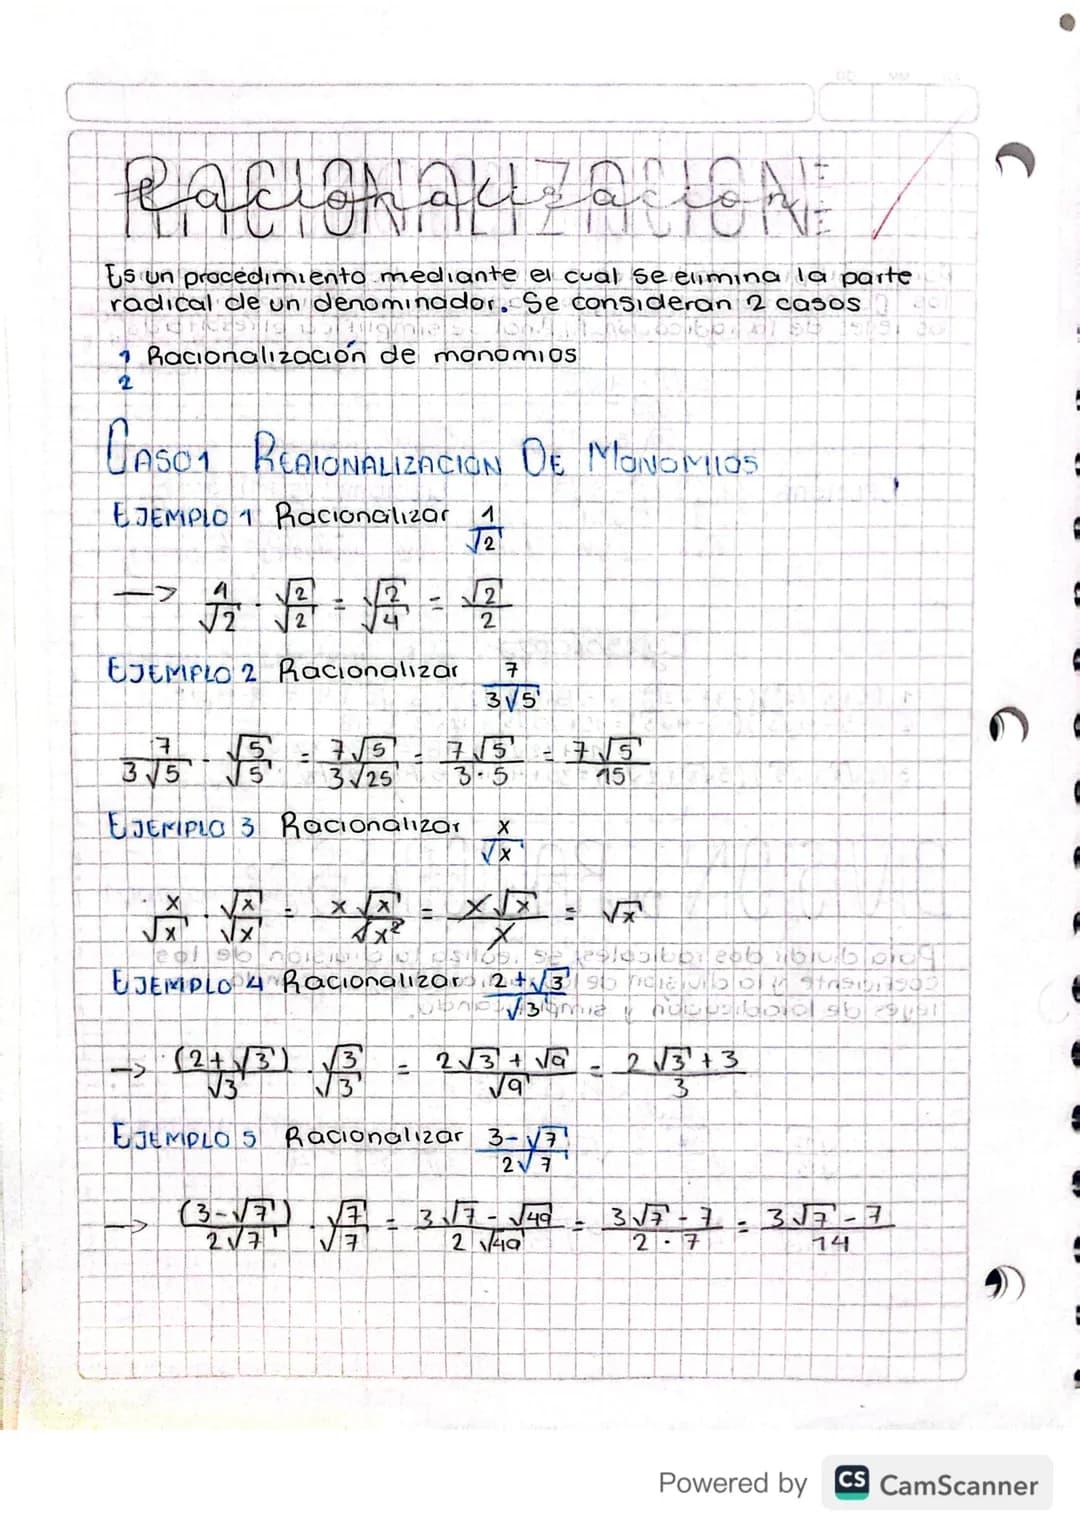 RACIONALIZACION
Es un procedimiento mediante el cual se elimina la parte
radical de un denominador. Se consideran 2 casos
1 Racionalización de monomios
2
CASO1 REAIONALIZACION DE MONOMIOS
EJEMPLO 1 Racionalizar 1/√2
—> 1/√2 · √2/√2 = √2/√4 = √2/2
EJEMPLO 2 Racionalizar 7/3√5
7/3√5 · √5/√5 = 7√5/3√25 = 7√5/3·5 = 7√5/15
EJEMPLO 3 Racionalizar x/√x
x/√x · √x/√x = x√x/√x² = x√x/x = √x
EJEMPLO 4 Racionalizar 2+√3/√3
—> (2+√3)/√3 · √3/√3 = 2√3+√9/√9 = 2√3+3/3
EJEMPLO 5 Racionalizar 3-√7/2√7
—> (3-√7)/2√7 · √7/√7 = 3√7-√49/2√49 = 3√7-7/2·7 = 3√7-7/14
Powered by CS CamScanner